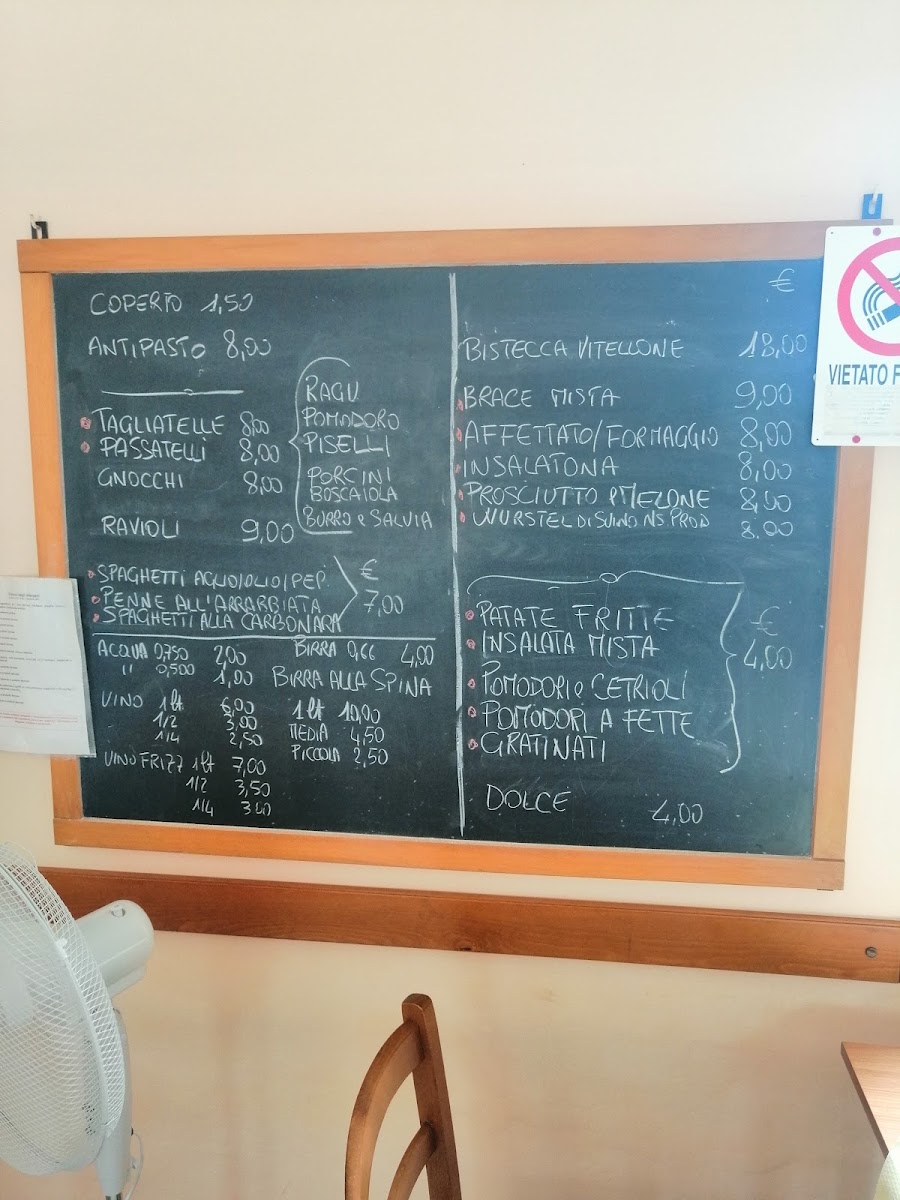 COPERTO 1,50
ANTIPASTO 8,00
TAGLIATELLE 8,00
PASSATELLI 8,00
GNOCCHI 8,00
RAVIOLI 9,00
RAGU
POMODORO
PISELLI
PORCINI
BOSCAIOLA
BURRO e SALVIA
SPAGHETTI AGLIO/OLIO/PEP.
PENNE ALL'ARRABBIATA
SPAGHETTI ALLA CARBONARA
€
7,00
ACQUA 0,750 2,00
" 0,500 1,00
VINO 1 lt 6,00
1/2 3,00
1/4 2,50
VINO FRIZZ 1 lt 7,00
1/2 3,50
1/4 3,00
BIRRA 0,66 4,00
BIRRA ALLA SPINA
1 lt 10,00
MEDIA 4,50
PICCOLA 2,50
€
BISTECCA VITELLONE 18,00
BRACE MISTA 9,00
AFFETTATO/FORMAGGIO 8,00
INSALATONA 8,00
PROSCIUTTO e MELONE 8,00
WURSTEL DI SUINO NS PROD 8.00
PATATE FRITTE
INSALATA MISTA
POMODORI e CETRIOLI
POMODORI A FETTE
GRATINATI
€
4,00
DOLCE 4,00
VIETATO F